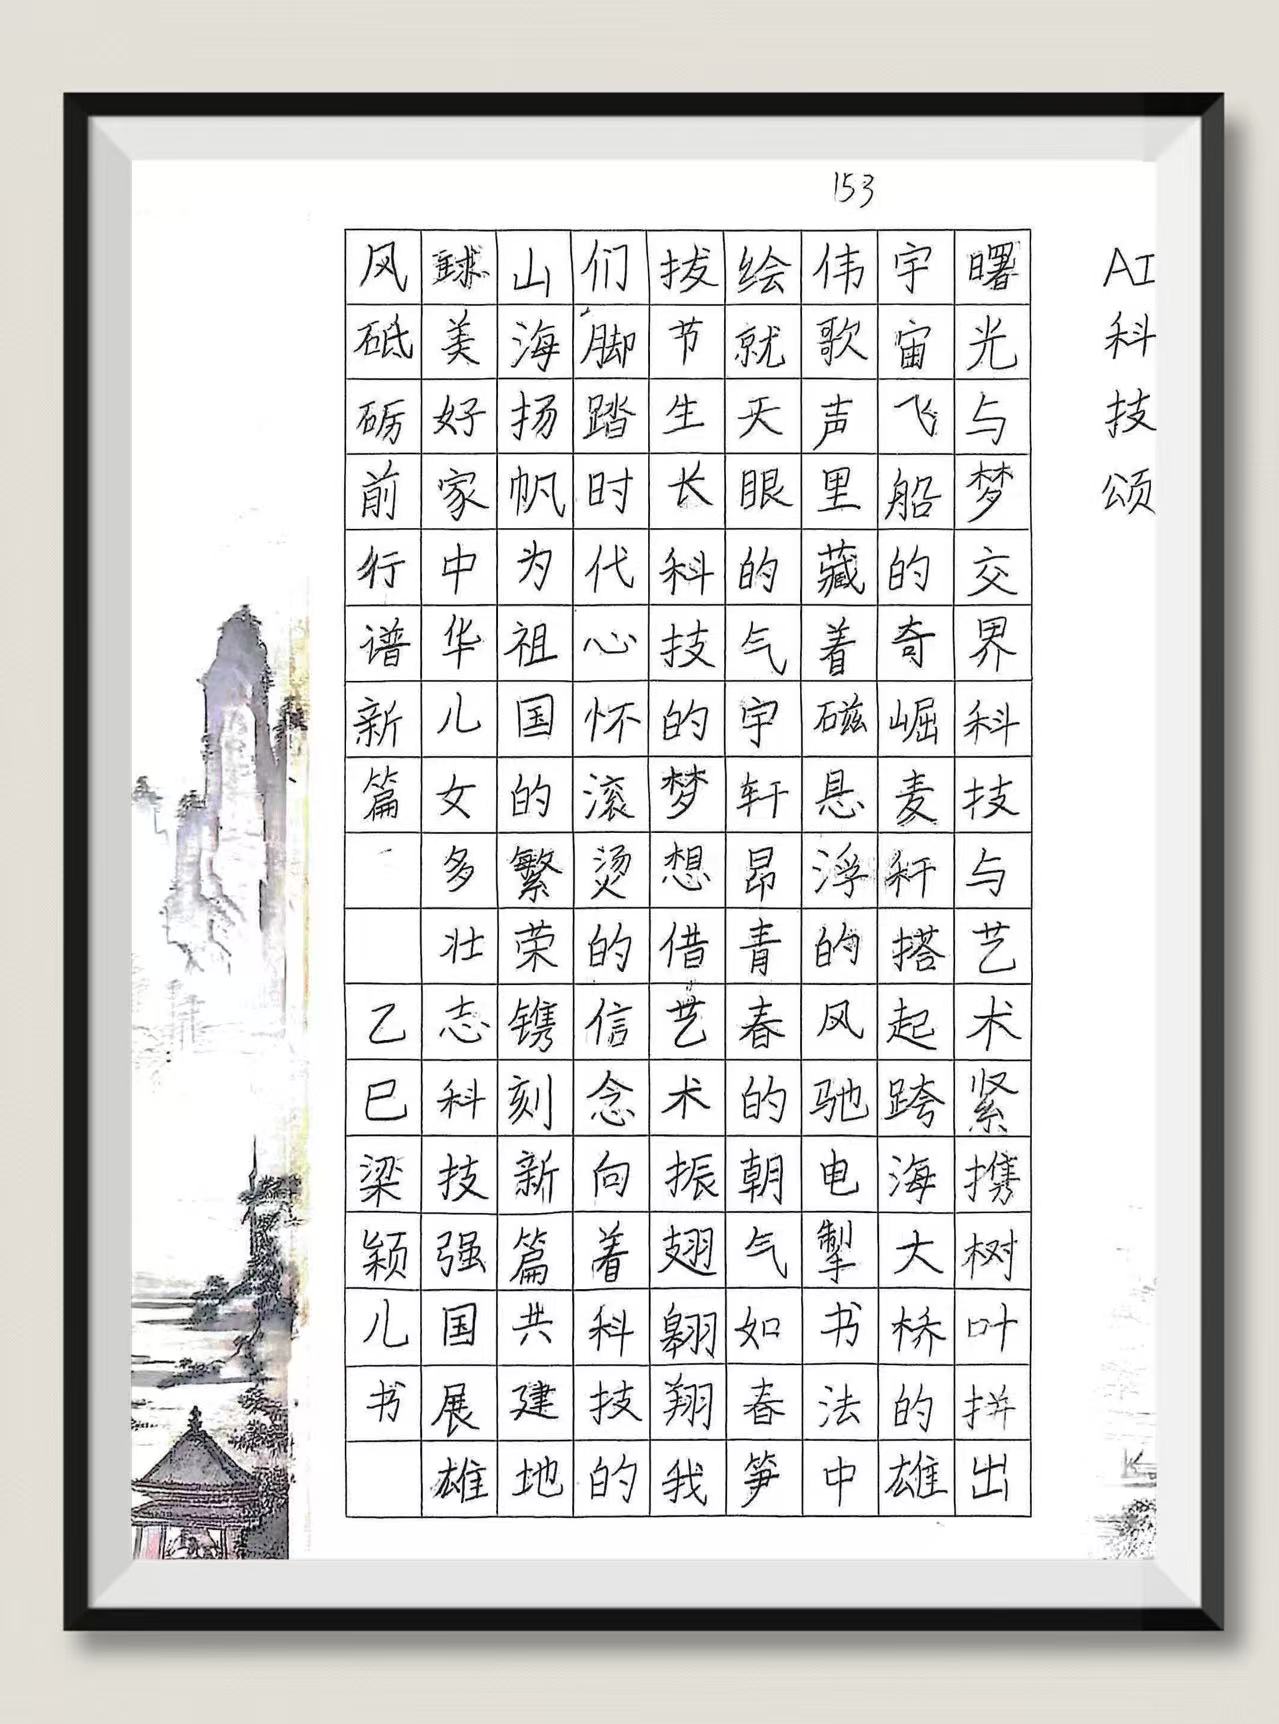 153
AI科技颂
曙光与梦交界科技与艺术紧携树叶拼出
宇宙飞船的奇崛麦秆搭起跨海大桥的雄
伟歌声里藏着磁悬浮的风驰电掣书法中
绘就天眼的气宇轩昂青春的朝气如春笋
拔节生长科技的梦想借艺术振翅翱翔我
们脚踏时代心怀滚烫的信念向着科技的
山海扬帆为祖国的繁荣镌刻新篇共建地
球美好家中华儿女多壮志科技强国展雄
风砥砺前行谱新篇 乙巳梁颖儿书